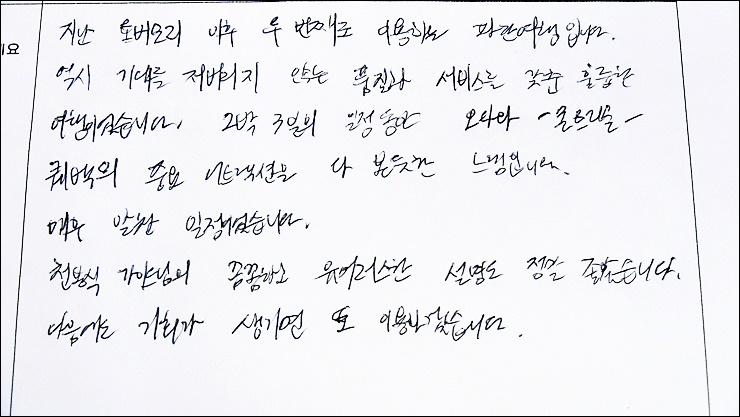 지난 토버모리 이후 두 번째로 이용하는 파란여행입니다.
세요
역시 기대를 저버리지 않는 품질과 서비스를 갖춘 훌륭한
여행이었습니다. 2박 3일의 일정동안 오타와 - 몬트리올 -
퀘벡의 중요 어트랙션을 다 본듯한 느낌입니다.
매우 알찬 일정이었습니다.
천봉식 가이드님의 꼼꼼하고 유머러스한 설명도 정말 좋았습니다.
다음에도 기회가 생기면 또 이용하겠습니다.